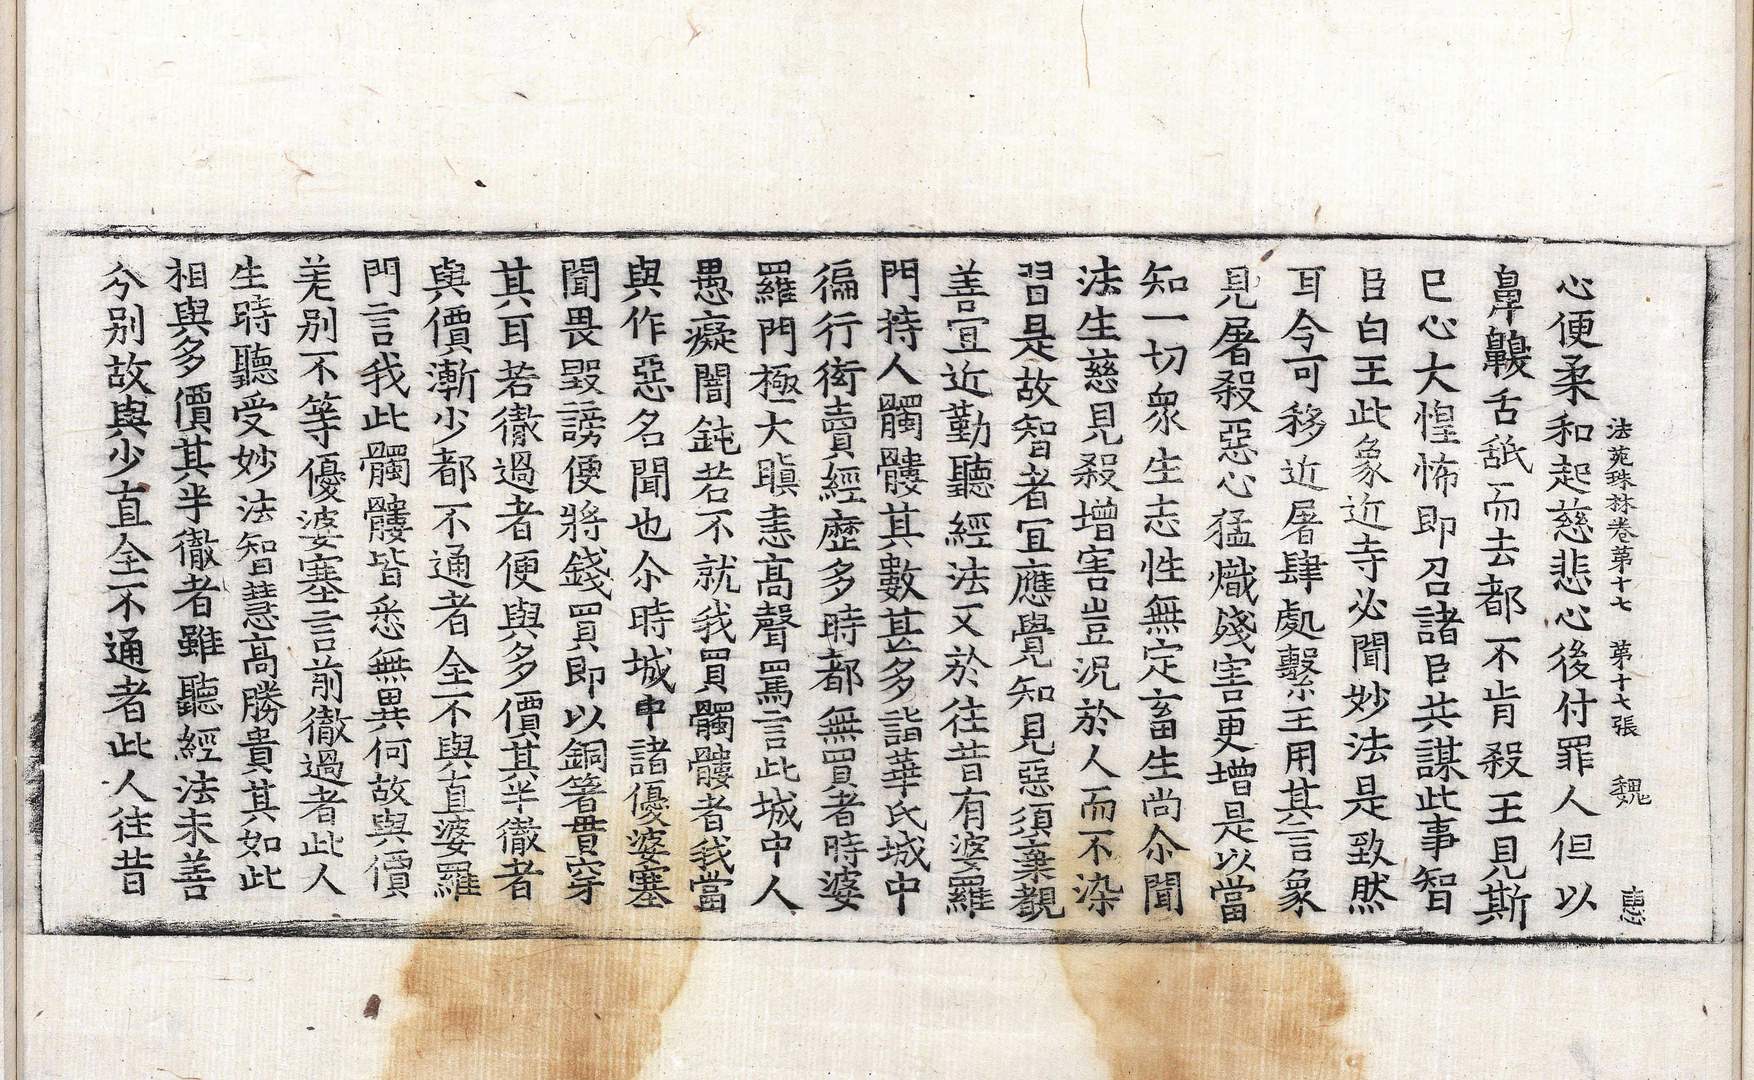 法苑珠林卷第十七 第十七張 魏 惠
心便柔和起慈悲心後付罪人但以
鼻齅舌舐而去都不肯殺王見斯
巳心大惶怖即召諸臣共謀此事智
臣白王此象近寺必聞妙法是致然
耳今可移近屠肆處繫王用其言象
見屠殺惡心猛熾殘害更增是以當
知一切衆生志性無定畜生尚尒聞
法生慈見殺增害豈況於人而不染
習是故智者宜應覺知見惡須棄覩
善宜近勤聽經法又於往昔有婆羅
門持人髑髏其數甚多詣華氏城中
徧行衒賣經歷多時都無買者時婆
羅門極大瞋恚高聲罵言此城中人
愚癡闇鈍若不就我買髑髏者我當
與作惡名聞也尒時城中諸優婆塞
聞畏毀謗便將錢買即以銅箸貫穿
其耳若徹過者便與多價其半徹者
與價漸少都不通者全不與直婆羅
門言我此髑髏皆悉無異何故與價
差別不等優婆塞言前徹過者此人
生時聽受妙法智慧高勝貴其如此
相與多價其半徹者雖聽經法未善
分別故與少直全不通者此人往昔